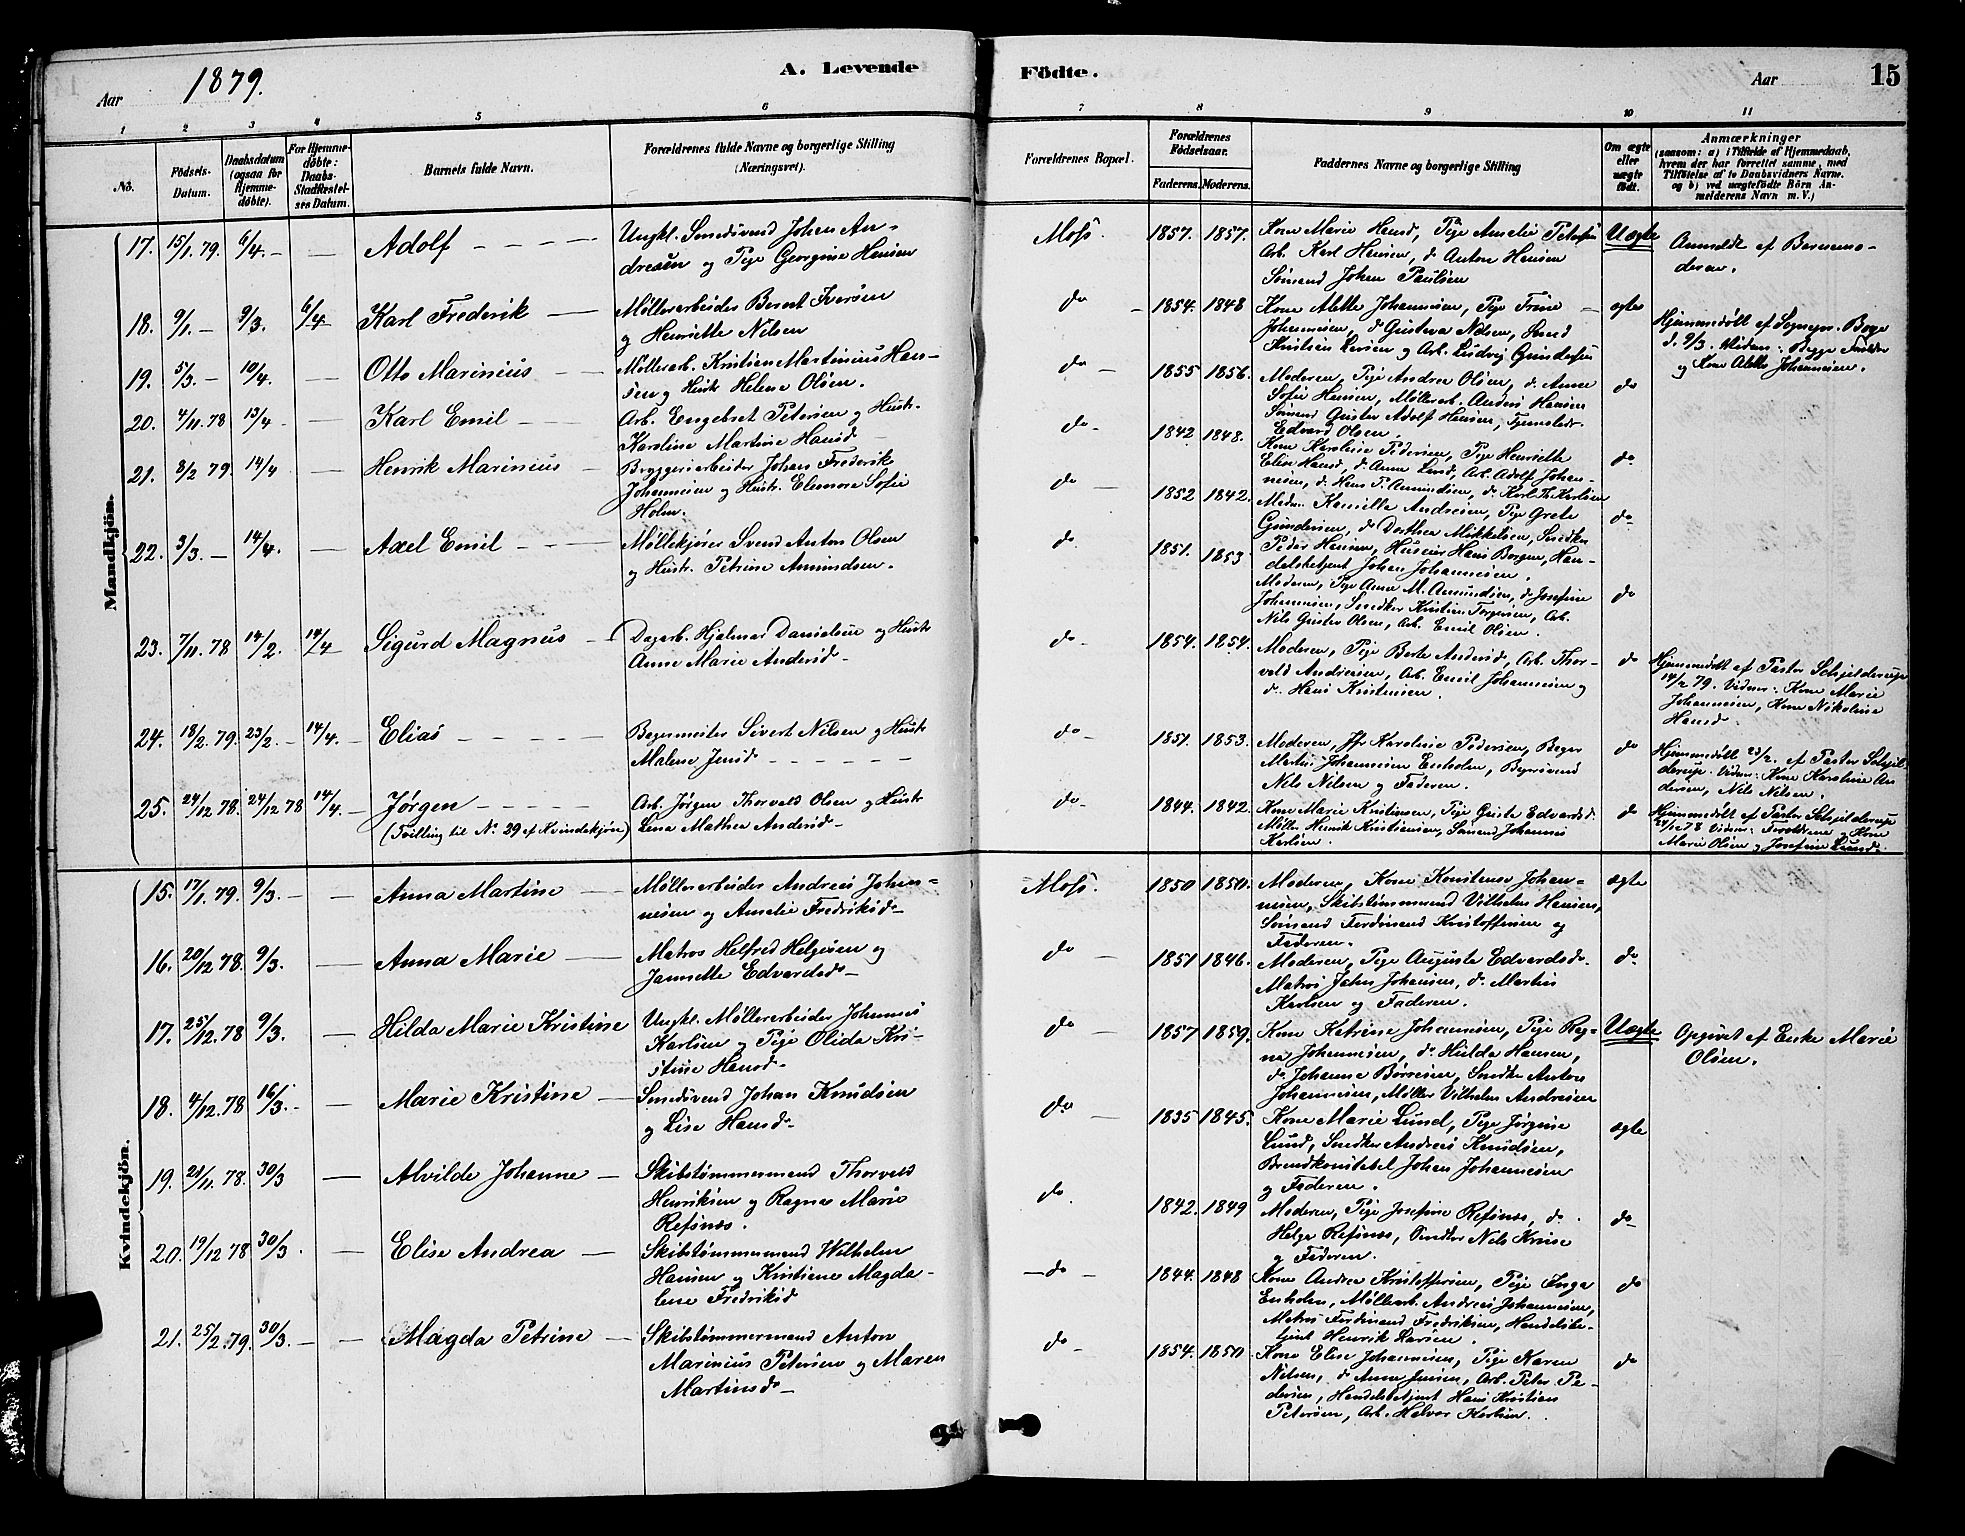 Aar 1879.
A. Levende
Födte.
Aar
15
1 2 3 4 5 6 7 8 9 10 11
No.
Födsels-
Datum.
Daabsdatum
(ogsaa for
Hjemme-
döbte).
For Hjemme-
döbte:
Daabs-
Stadfæstel-
ses Datum.
Barnets fulde Navn.
Forældrenes fulde Navne og borgerlige Stilling
(Næringsvei).
Forældrenes Bopæl.
Forældrenes
Födselsaar.
Faderens. Moderens.
Faddernes Navne og borgerlige Stilling
Om ægte
eller
uægte
födt.
Anmærkninger
(saasom: a) i Tilfælde af Hjemmedaab,
hvem der har forrettet samme, med
Tilföielse af to Daabsvidners Navne.
og b) ved uægtefödte Börn An-
melderens Navn m. V.)
Mandkjön.
17. 15/1 79. 6/4. — — Adolf
Ungkl. Smedsvend Johan An-
dreasen og Pige Georgine Hansen
Moss. 1857. 1857.
Kone Marie Hansd, Pige Amalie Petersen
Arb. Karl Hansen, do Anton Hansen
Sømand Johan Paulsen
Uægte
Anmeldt af Barnemo-
deren.
18. 9/1 — 9/3. 6/4 Karl Frederik
Møllerarbeider Bernt Iversen
og Henriette Nilsen
do 1854. 1848
Kone Alette Johannesen, Pige Trine
Johannesen, do Gustava Nilsen, Smed
Knidsen Larsen og Arb. Ludvig Gundersen
ægte
Hjemmedøbt af Sognepr. Boge
d. 9/3. Vidner: Begge Forældre
og Kone Alette Johannesen.
19. 5/3 — 10/4. — Otto Marinius
Møllerarb. Kristian Martinius Han-
sen og Hustr Helene Olsen.
do 1855 1856.
Moderen, Pige Andrea Olsen, do Anne
Sofie Hansen, Møllerarb. Anders Hansen
Sømand Gustav Adolf Hansen,
Edvard Olsen.
do
20. 4/11. 78 13/4 — Karl Emil
Arb. Engebret Petersen og Hustr.
Karoline Martine Hansd
do 1842 1848.
Kone Karoline Pedersen, Pige Henriette
Elise Hansd, do Anne Lund, Arb. Adolf Johan-
nesen, do Hans P. Amundsen, do Karl Th. Karlsen
do
21. 8/2 79. 14/4 — Henrik Marinius
Bryggeriarbeider Johan Frederik
Johannesen og Hustr. Elenora Sofie
Holm.
do 1852 1842.
Medm. Kamilla Andresen, Pige Grete
Gundersen, do Dorthea Mikkelsen, Snedker
Peder Hansen, Huseier Hans Borgen, Han-
delsbetjent Johan Johannesen.
do
22. 3/3. — 14/4. — Axel Emil
Møllekjører Svend Anton Olsen
og Hustr. Petrine Amundsen.
do 1851. 1853
Moderen, Pige Anne M. Amundsen, do Josefine
Johannesen, Snedker Kristian Torgersen, Arb.
Nils Gustav Olsen, Arb. Emil Olsen.
do
23. 7/11. 78 14/2. 14/4 Sigurd Magnus
Dagarb. Hjalmar Danielsen og Hustr
Anne Marie Andersd
do 1854. 1854.
Moderen, Pige Berte Andersd, Arb. Thor-
vald Andresen, Arb. Emil Johannesen og
do Hans Kristensen.
do
Hjemmedøbt af Pastor Schjelderup
14/2 79. Vidner: Kone Marie
Johannesen, Kone Nikoline
Hansd.
24. 18/2. 79. 23/2. 14/4. Elias
Bagermester Sivert Nilsen og Hustr
Malene Jensd
do 1851. 1853.
Moderen, Jfr Karoline Pedersen, Bager
Martin Johannesen Enholm, Bagersvend
Nils Nilsen og Faderen.
do
Hjemmedøbt 23/2. af Pastor Schjel-
derup. Vidner: Kone Karoline An-
dersen, Nils Nilsen.
25. 24/12 78. 24/12 78 14/4. Jørgen
(Tvilling til No 29 af Kvindekjøn)
Arb. Jørgen Thorvald Olsen og Hustr
Lena Mathea Andersd
do 1844. 1842.
Kone Marie Kristensen, Pige Grete Edvardsd.
Møller Henrik Kristiansen, Sømand Johannes
Karlsen.
do
Hjemmedøbt af Pastor Schjelderup
24/12 78 Vidner: Forældrene og Kone
Marie Olsen og Josefine Lund
Kvindekjön.
15. 17/1. 79. 9/3. — — Anna Martine
Møllerarbeider Andreas Johan-
nesen og Amalie Fredriksd
Moss. 1850 1850.
Moderen, Kone Konstanse Johan-
nesen, Skibstømmermand Vilhelm Hansen,
Sømand Ferdinand Kristoffersen og
Faderen.
ægte
16. 20/12 78. 9/3. — Anna Marie
Matros Helfred Helgesen og
Jannette Edvardsd
do 1851 1846.
Moderen, Pige Augusta Edvardsd.
Matros John Johansen, do Martin
Karlsen og Faderen.
do
17. 25/12. 78 9/3. — Hilda Marie Kristine
Ungkl. Møllerarbeider Johannes
Karlsen og Pige Olida Kri-
stine Hansd
do 1857 1859.
Kone Katrine Johannesen, Pige Rag-
na Johannesen, do Hulda Hansen,
do Johanne Børresen, Snedker Anton
Johannesen, Møller Vilhelm Andresen
Uægte
Opgivet af Enke Marie
Olsen.
18. 4/12. 78 16/3. — Marie Kristine
Smedsvend Johan Knudsen
og Lise Hansd
do 1835 1845.
Kone Marie Lund, Pige Jørgine
Lund, Snedker Andreas Knudsen,
Brandkonstabel Johan Johannesen
og Faderen.
ægte
19. 21/11. 78. 30/3 — Alvilde Johanne
Skibstømmermand Thorvald
Henriksen og Ragna Marie
Refsnes.
do. 1842. 1849
Moderen, Pige Josefine Refsnes, do.
Helga Refsnes, Snedker Nils Kruse
og Faderen.
do
20. 19/12 78 30/3. — Elise Andrea
Skibstømmermand Wilhelm
Hansen og Kristiane Magda-
lene Fredriksd
do 1844. 1848
Kone Andrea Kristoffersen, Pige Inga
Enholm, Møllerarb. Andreas Johannesen,
Matros Ferdinand Fredriksen, Handelsbe-
tjent Henrik Larsen.
do
21. 25/2. 79. 30/3. — — Magda Petrine
Skibstømmermand Anton
Marinius Petersen og Maren
Martinsd
do 1854. 1850
Kone Elise Johannesen, Pige Karen
Nilsen, do Anna Jensen, Arb. Peter Pe-
dersen, Handelsbetjent Hans Kristian
Petersen, Arb. Halvor Karlsen.
do